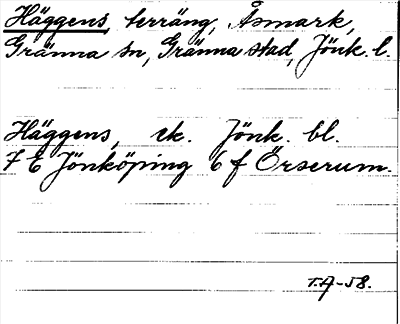 Häggens, terräng, Åsmark,
Gränna sn, Gränna stad, Jönk. l.
Häggens, ek. Jönk. bl.
7 E Jönköping 6 f Örserum.
T.A-58.